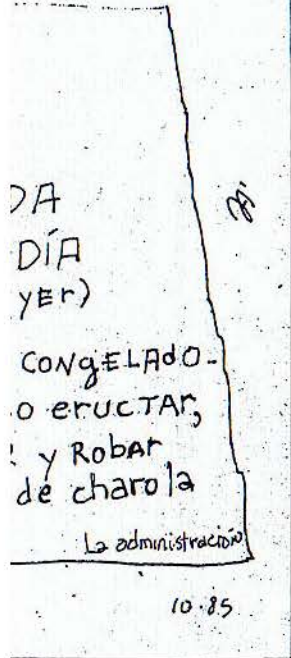 DA
DÍA
yEr)
CONgELAdO-
o erucTAr,
y RobAr
de charola
La administración
10.85